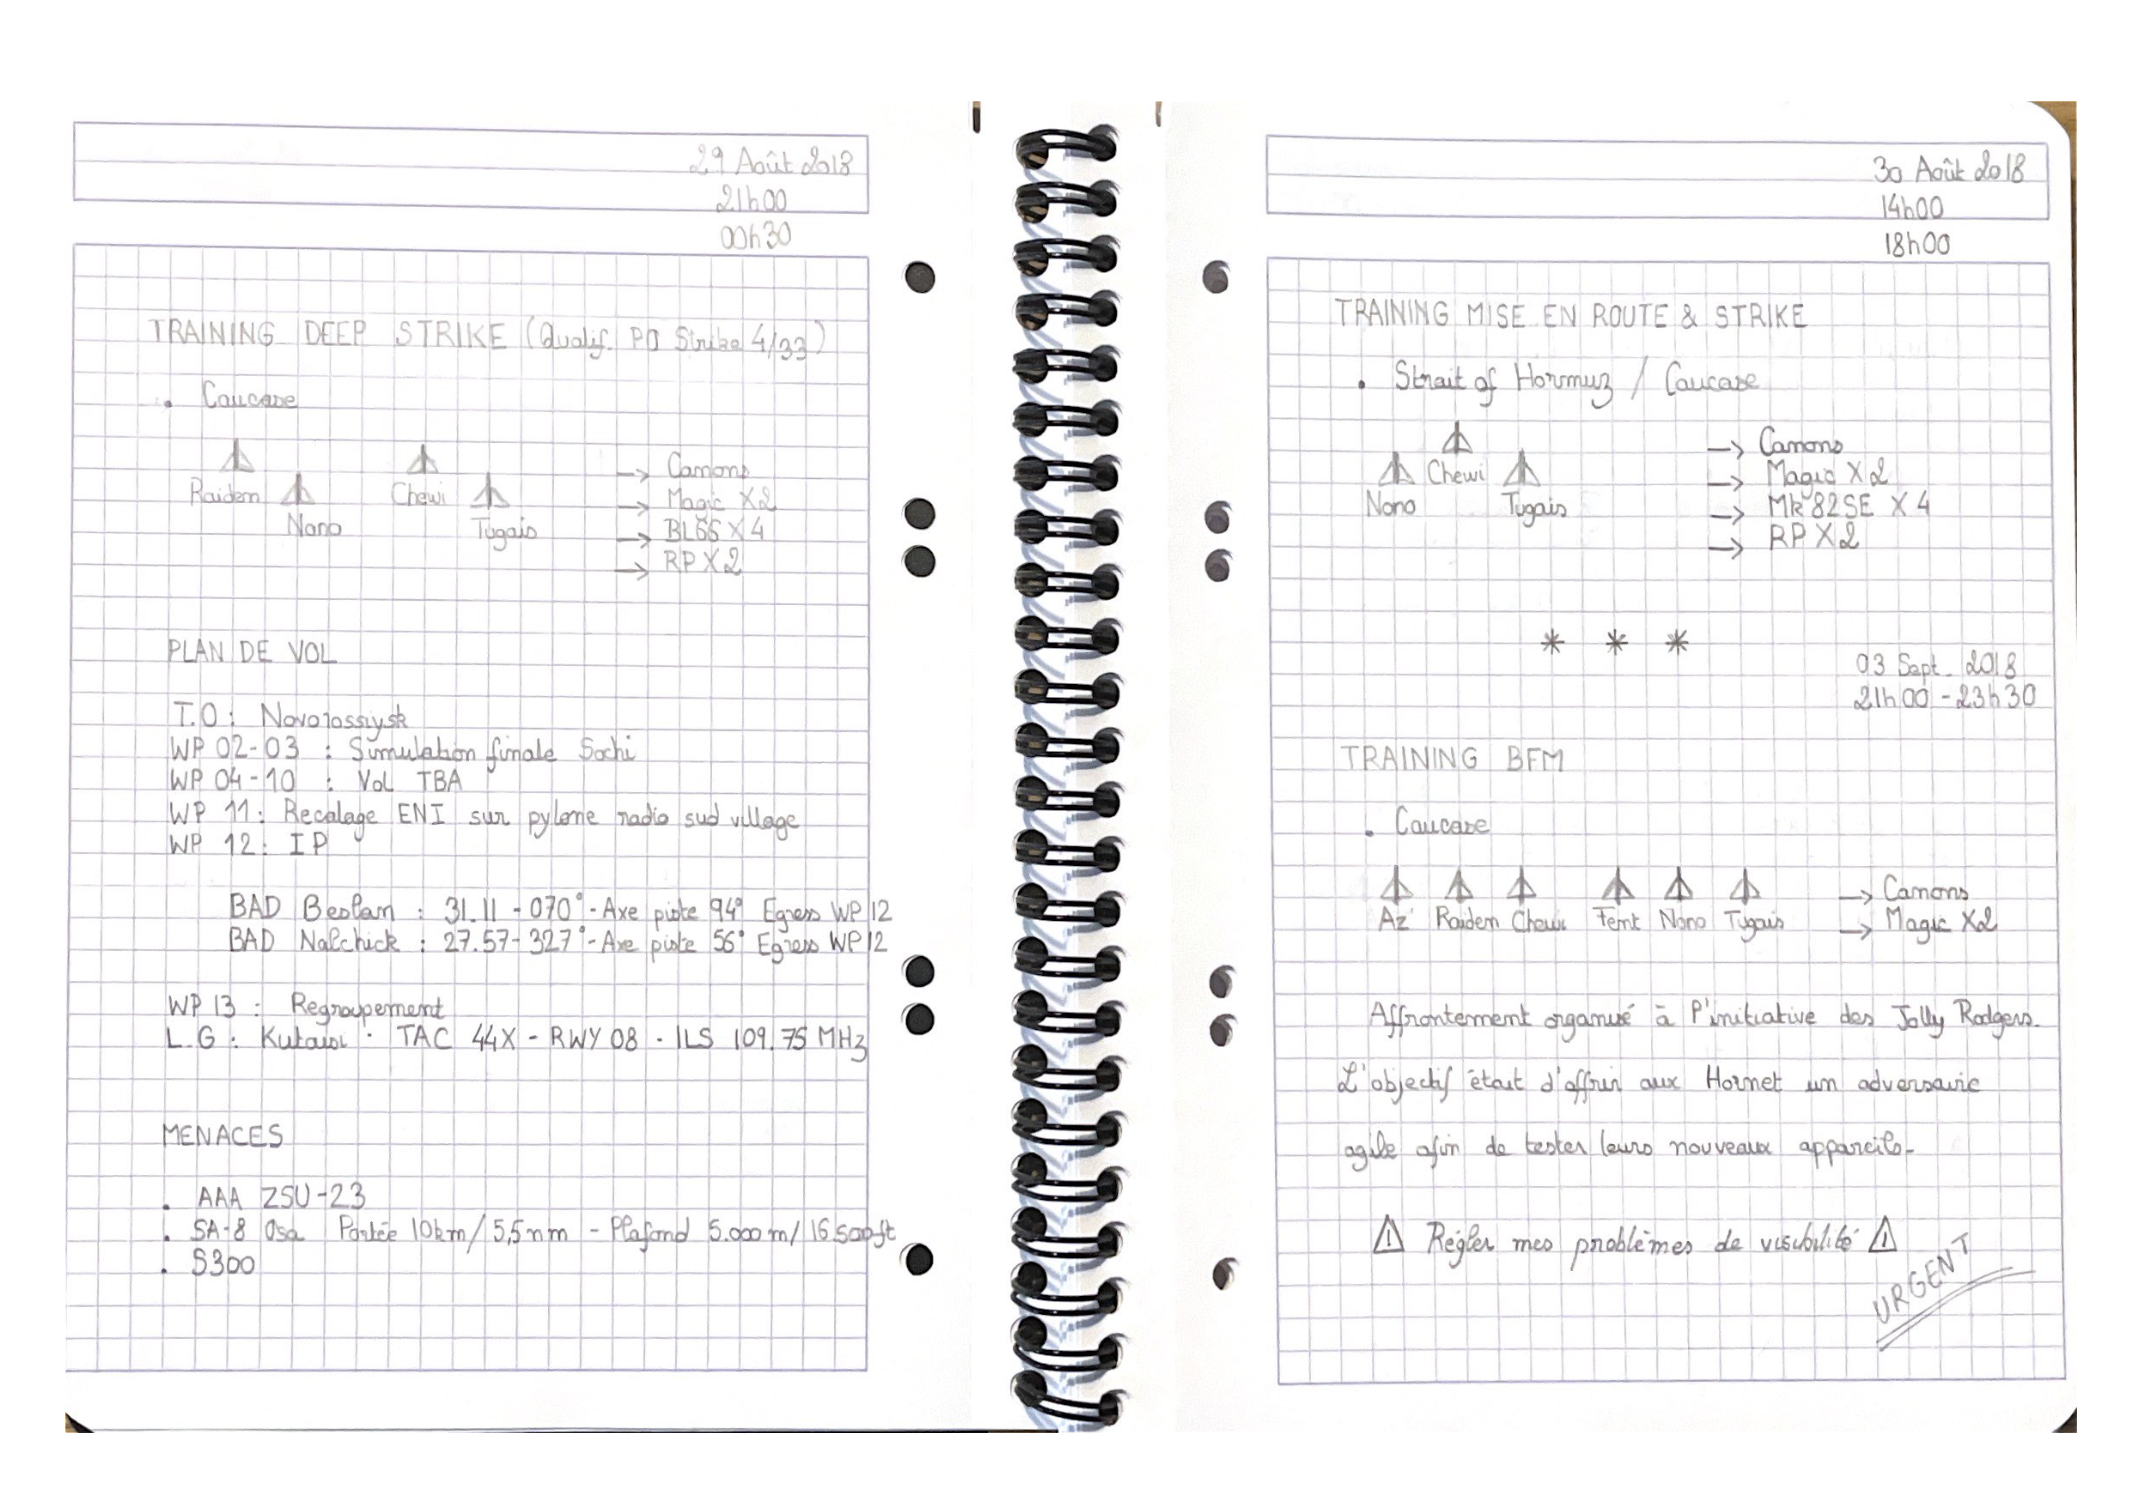 29 Août 2018
21h00
00h30
TRAINING DEEP STRIKE (Qualif. PO Strike 4/33)
. Caucase
Raiden Nono Chewi Tugais
-> Canons
-> Magic X2
-> BL66 X 4
-> RP X2
PLAN DE VOL
T.O : Novorossiysk
WP 02-03 : Simulation finale Sochi
WP 04-10 : Vol TBA
WP 11 : Recalage ENI sur pylone radio sud village
WP 12 : IP
BAD Beslan : 31.11 - 070° - Axe piste 94° Egress WP 12
BAD Nalchick : 27.57 - 327° - Axe piste 56° Egress WP 12
WP 13 : Regroupement
L.G : Kutaisi . TAC 44X - RWY 08 - ILS 109.75 MHz
MENACES
. AAA ZSU-23
. SA-8 Osa Portée 10km / 5,5nm - Plafond 5.000 m / 16500ft
. S300
30 Août 2018
14h00
18h00
TRAINING MISE EN ROUTE & STRIKE
. Strait of Hormuz / Caucase
Nono Chewi Tugais
-> Canons
-> Magic X2
-> Mk 82SE X 4
-> RP X2
* * *
03 Sept. 2018
21h00 - 23h30
TRAINING BFM
. Caucase
Az' Raiden Chewi Femt Nono Tugais
-> Canons
-> Magic X2
Affrontement organisé à l'initiative des Jolly Rodgers.
L'objectif était d'offrir aux Hornet un adversaire
agile afin de tester leurs nouveaux appareils.
⚠ Régler mes problèmes de visibilité ⚠
URGENT